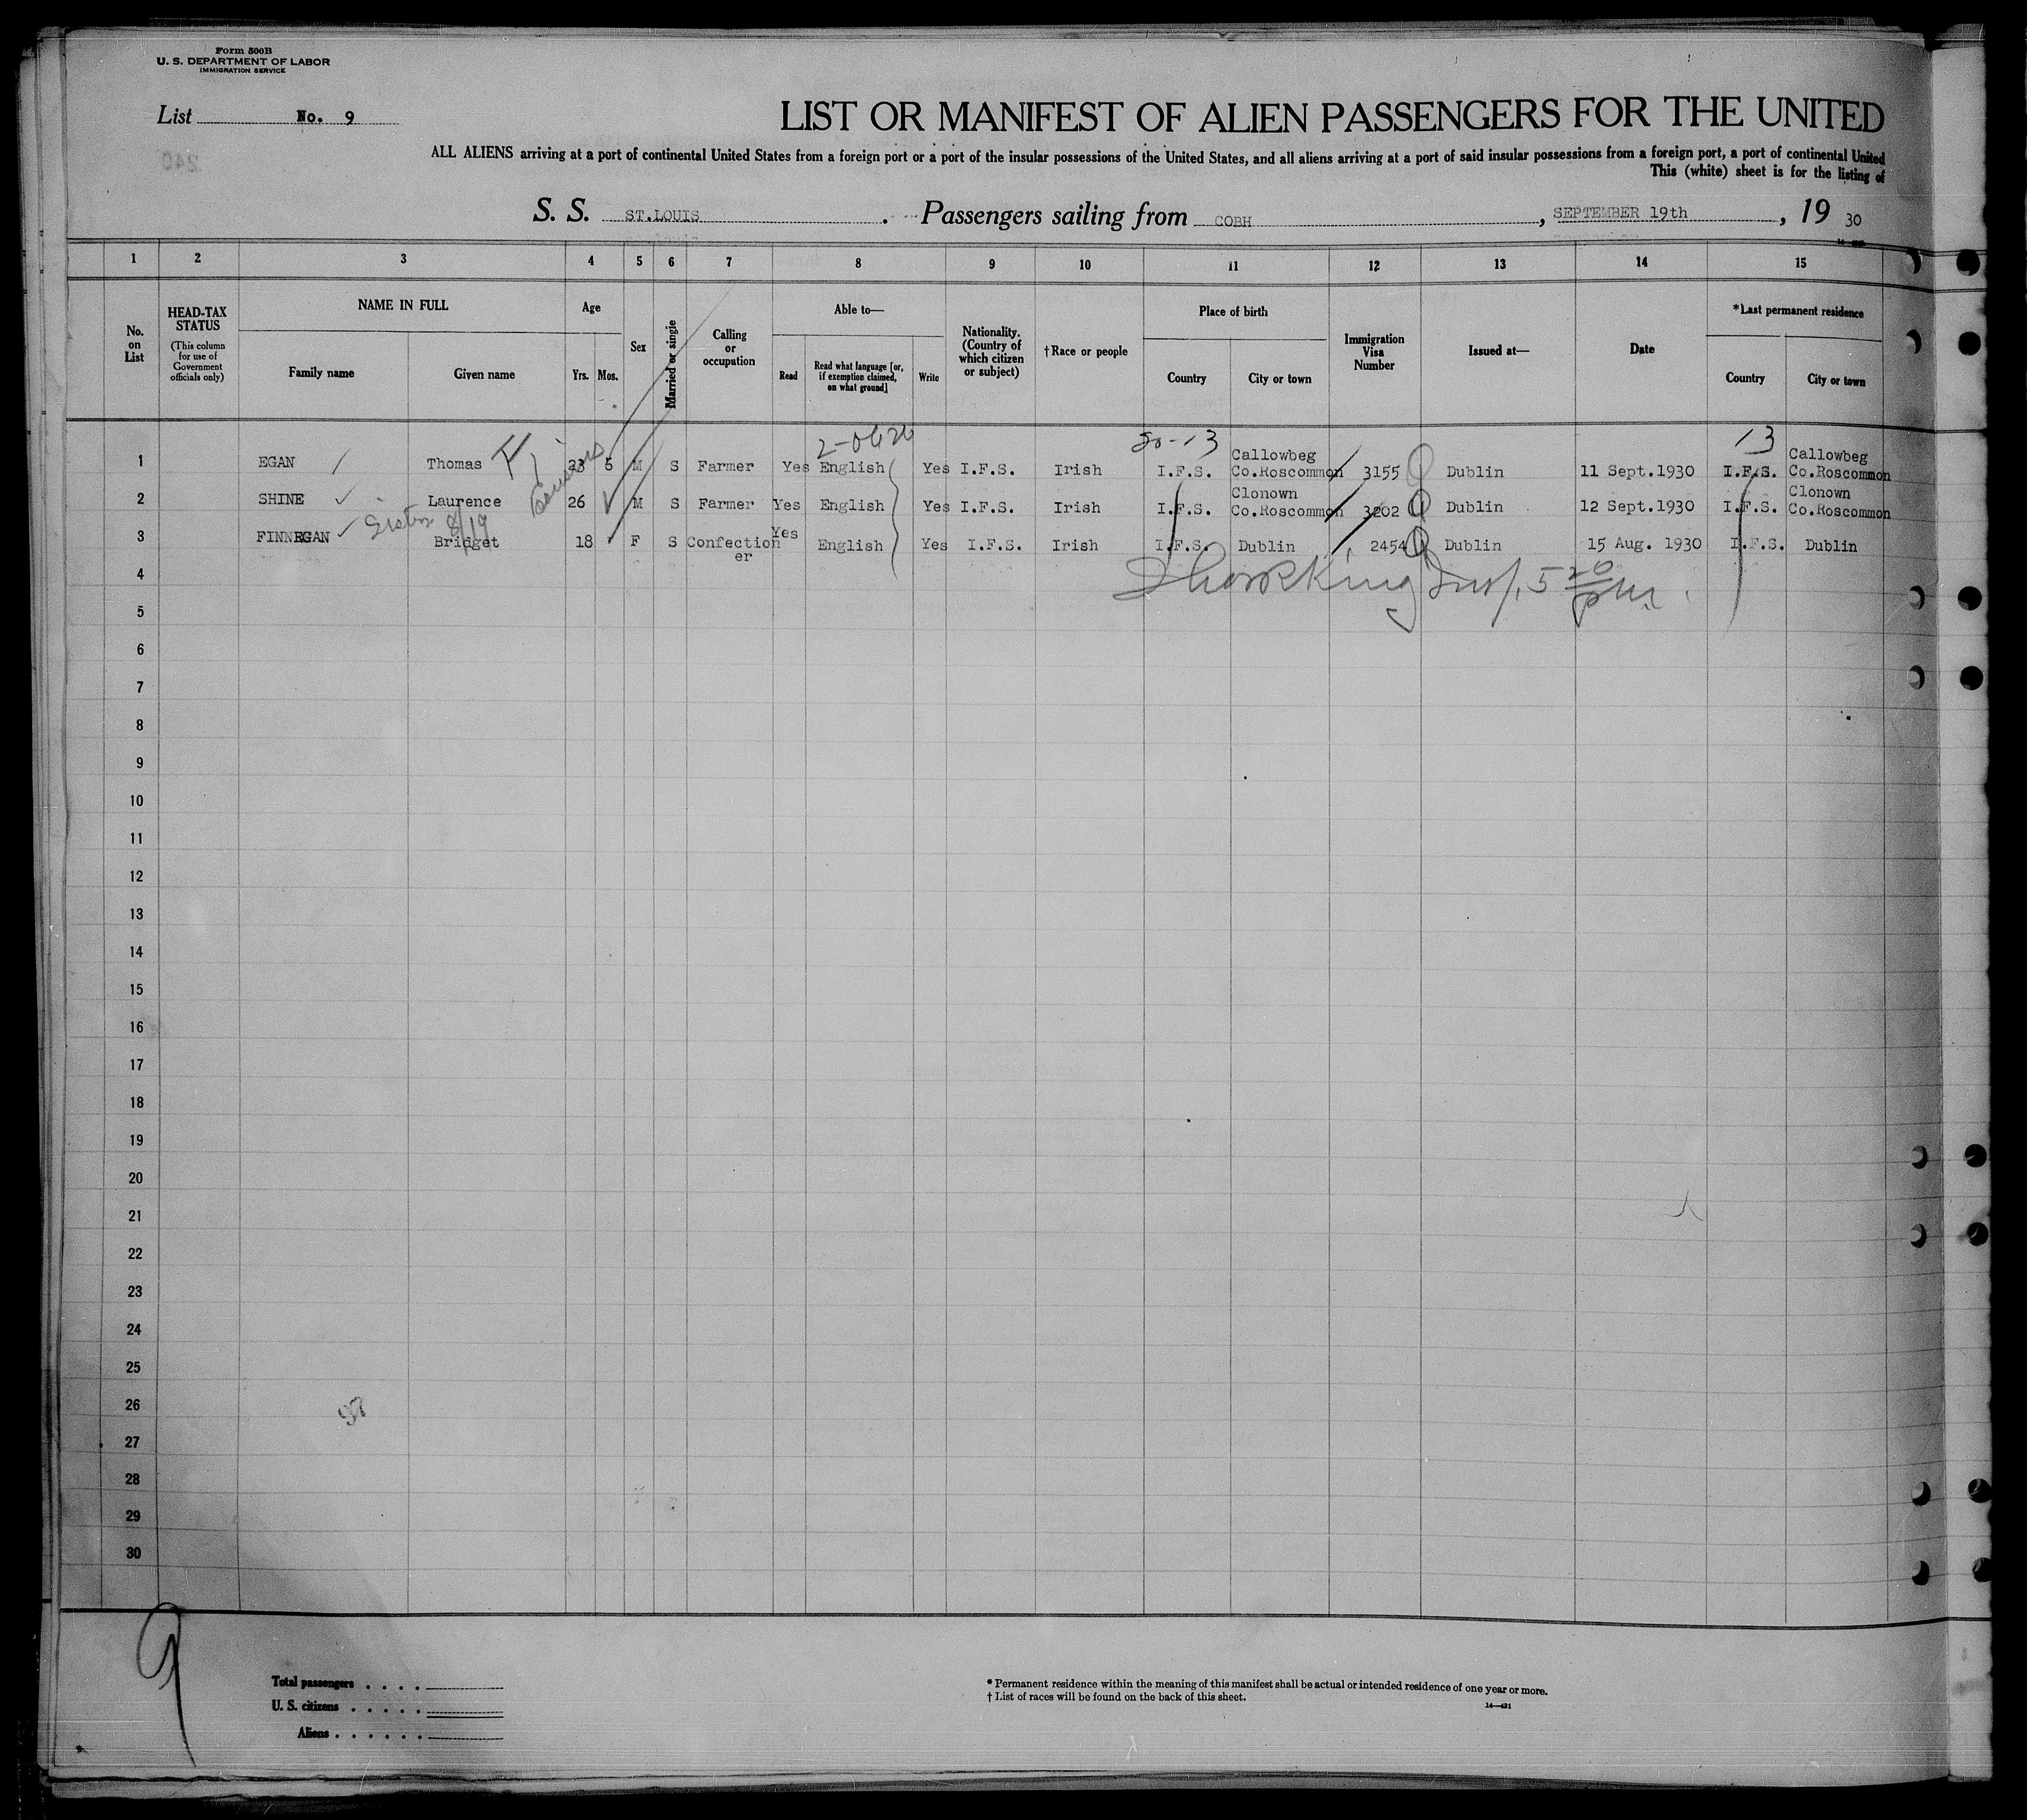 Form 500B
U. S. DEPARTMENT OF LABOR
IMMIGRATION SERVICE
List No. 9
LIST OR MANIFEST OF ALIEN PASSENGERS FOR THE UNITED
ALL ALIENS arriving at a port of continental United States from a foreign port or a port of the insular possessions of the United States, and all aliens arriving at a port of said insular possessions from a foreign port, a port of continental United
This (white) sheet is for the listing of
S. S. ST.LOUIS. Passengers sailing from COBH, SEPTEMBER 19th, 19 30
1 2 3 4 5 6 7 8 9 10 11 12 13 14 15
No. on List
HEAD-TAX STATUS
(This column for use of Government officials only)
NAME IN FULL
Family name
Given name
Age
Yrs. Mos.
Sex
Married or single
Calling or occupation
Able to—
Read
Read what language [or, if exemption claimed, on what ground]
Write
Nationality. (Country of which citizen or subject)
†Race or people
Place of birth
Country
City or town
Immigration Visa Number
Issued at—
Date
*Last permanent residence
Country
City or town
13
1 EGAN Thomas 23 5 M S Farmer Yes English Yes I.F.S. Irish I.F.S. Callowbeg Co.Roscommon 3155 Dublin 11 Sept.1930 I.F.S. Callowbeg Co.Roscommon
2 SHINE Laurence 26 M S Farmer Yes English Yes I.F.S. Irish I.F.S. Clonown Co.Roscommon 3202 Dublin 12 Sept.1930 I.F.S. Clonown Co.Roscommon
3 FINNEGAN Bridget 18 F S Confectioner Yes English Yes I.F.S. Irish I.F.S. Dublin 2454 Dublin 15 Aug. 1930 I.F.S. Dublin
4
5
6
7
8
9
10
11
12
13
14
15
16
17
18
19
20
21
22
23
24
25
26
27
28
29
30
9
Total passengers . . . .
U. S. citizens . . . . .
Aliens . . . . . .
* Permanent residence within the meaning of this manifest shall be actual or intended residence of one year or more.
† List of races will be found on the back of this sheet.
14—431